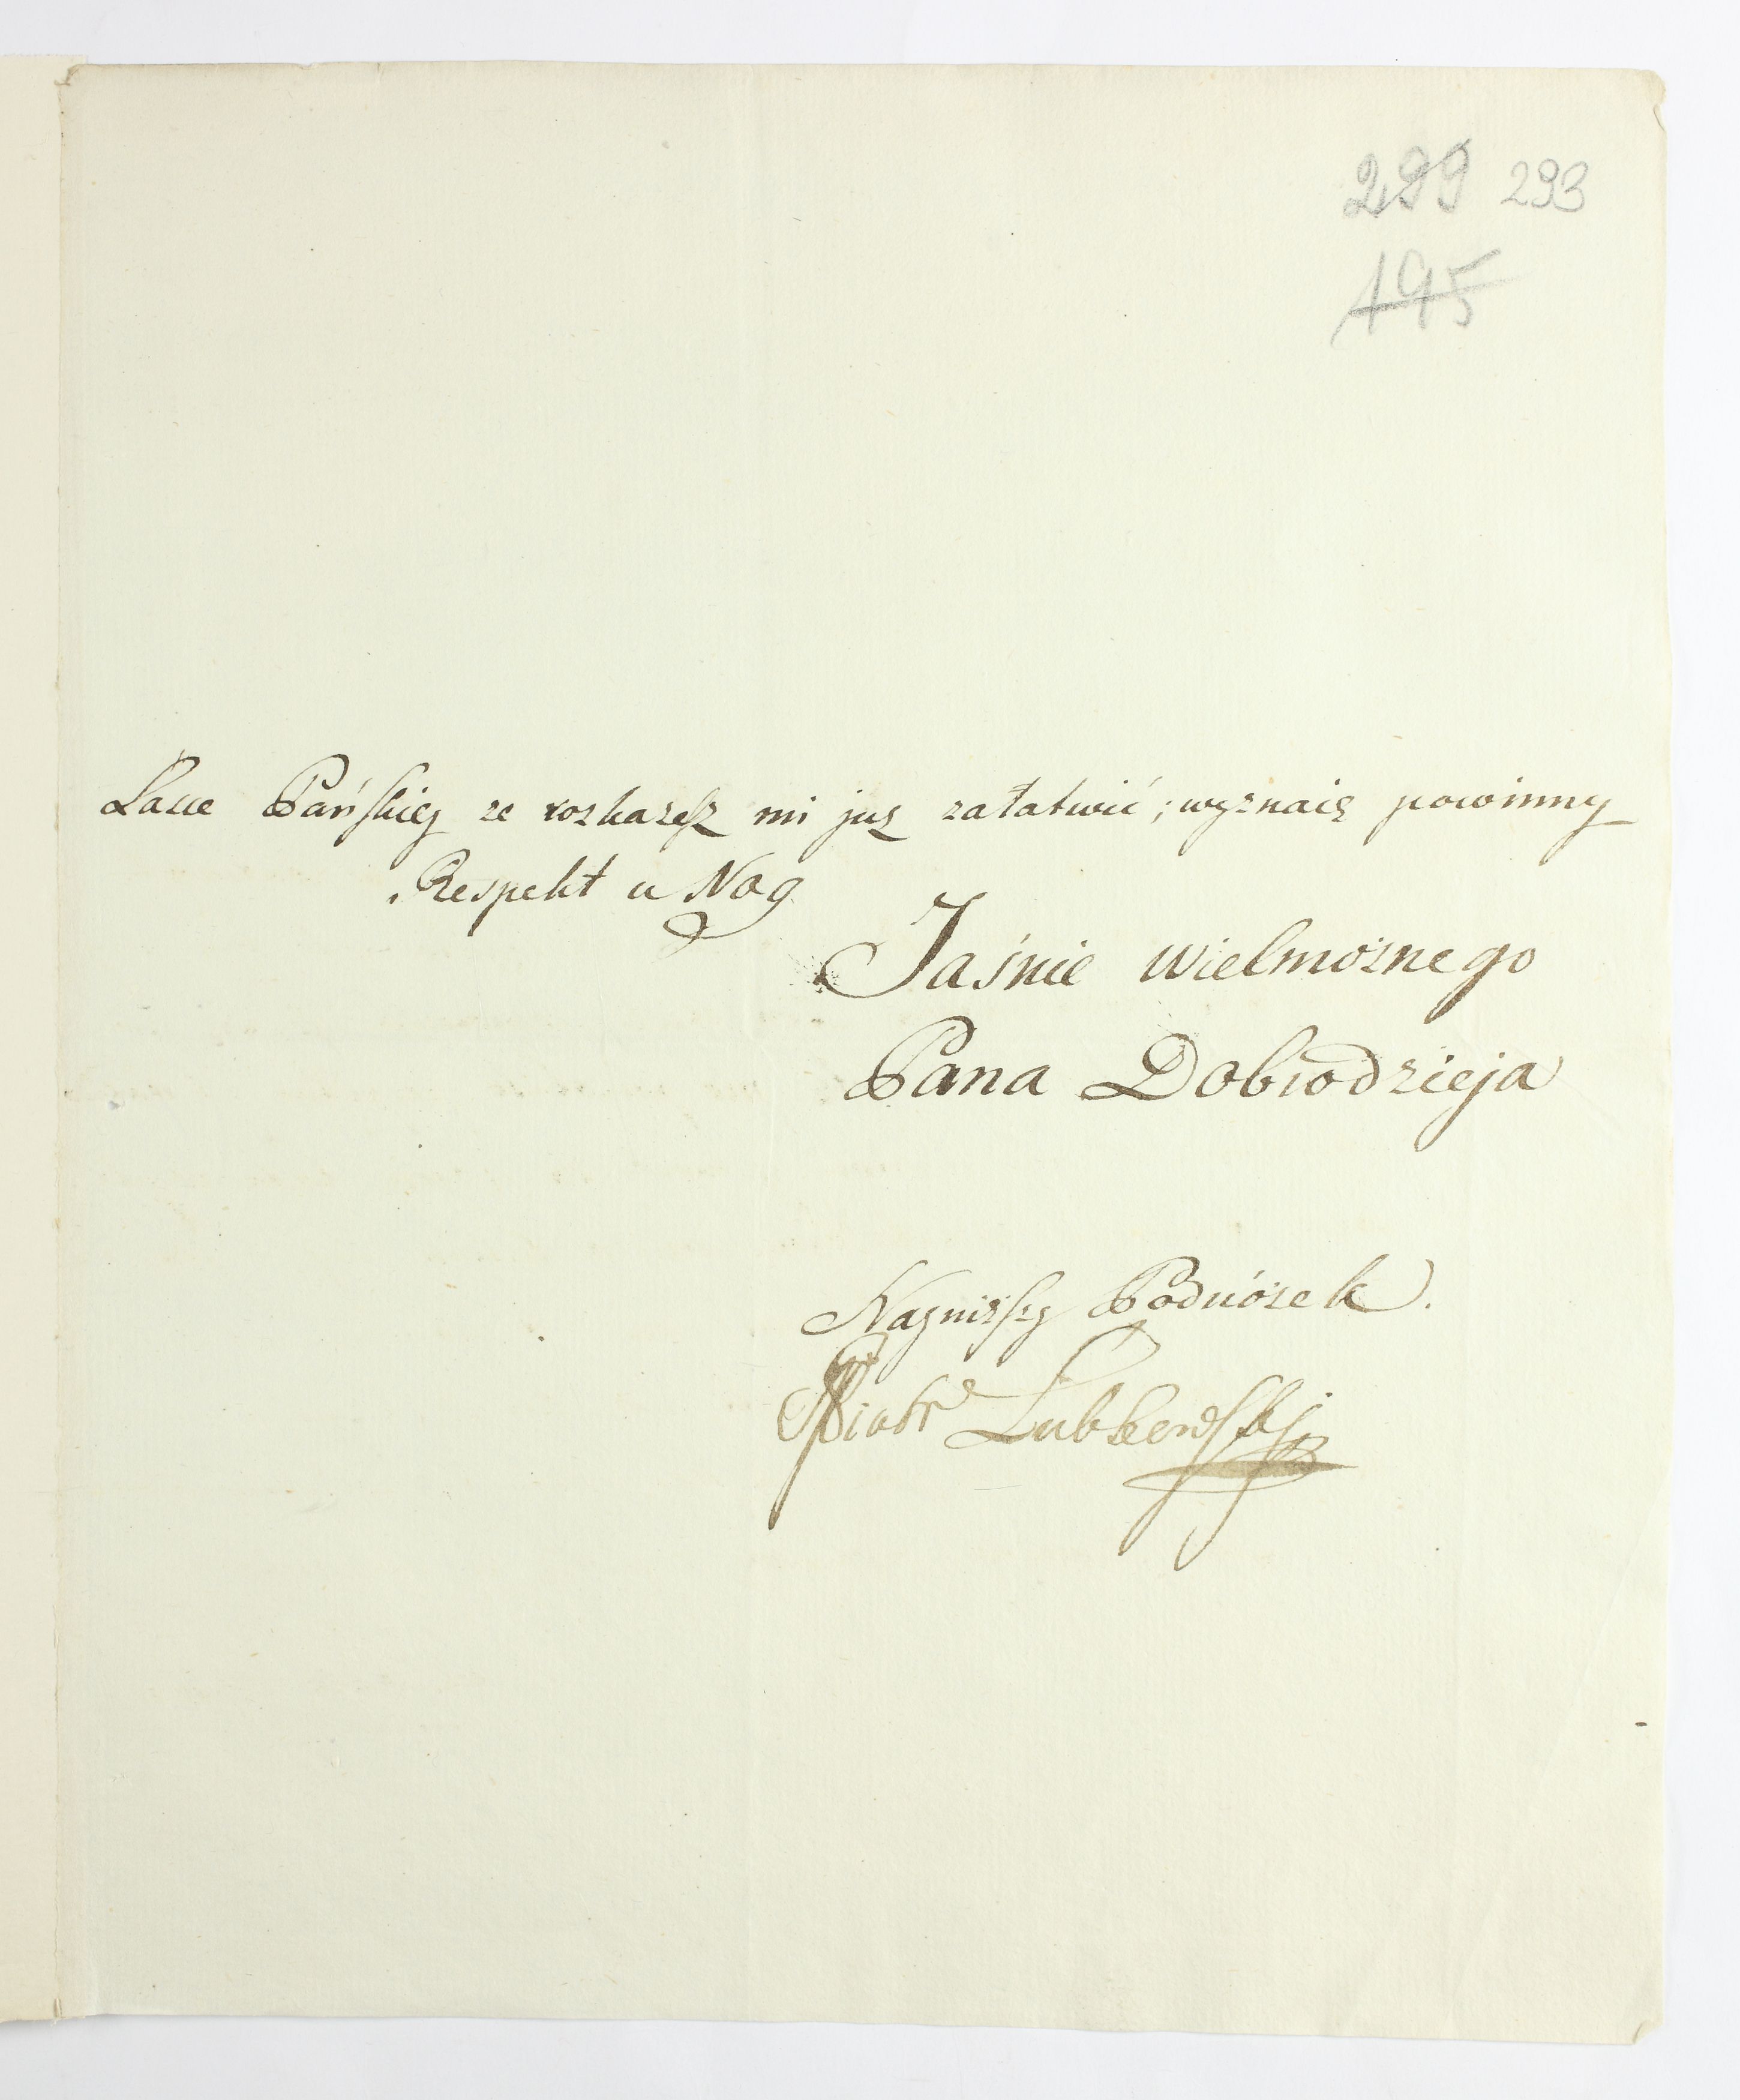 299 293
195
Łasce Pańskiey ze rozkażesz mi już załatwić; wyznaię powinny
Respekt u Nóg
Jaśnie Wielmożnego
Pana Dobrodzieja
Nayniższy Podnóżek.
Piotr